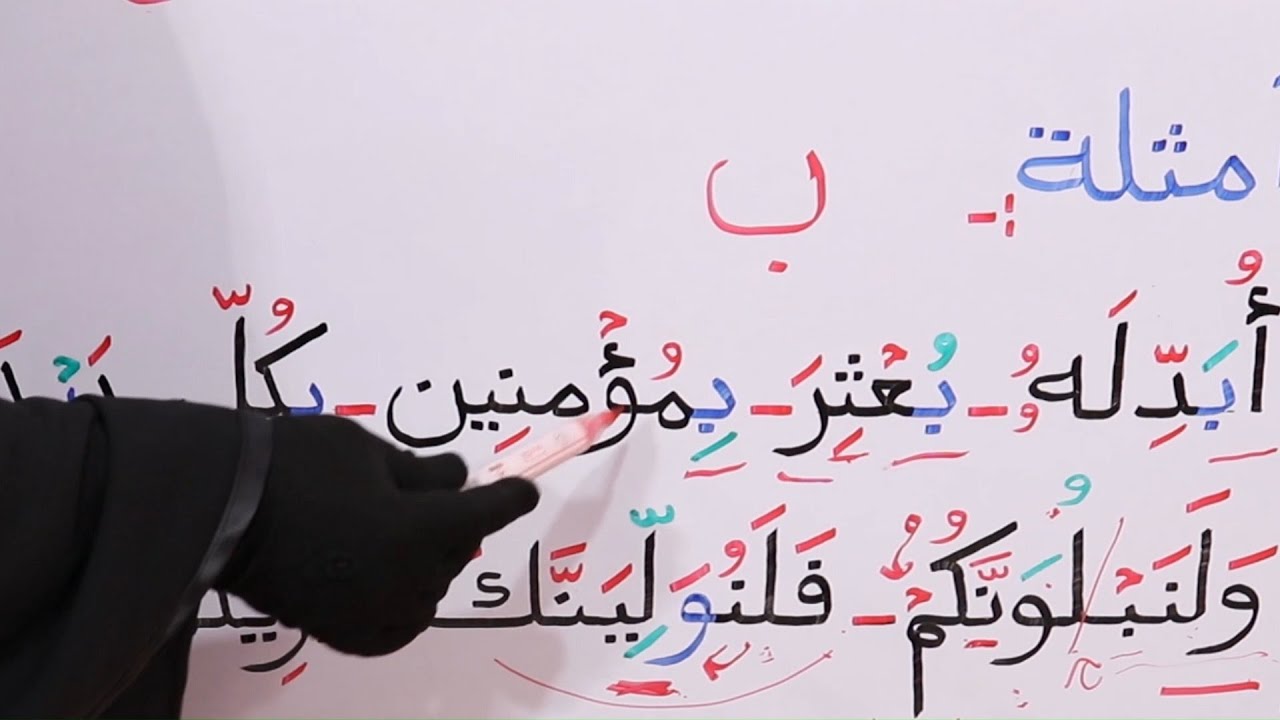 أمثلة :-
ب
أُبَدِّلَهُ - بُعْثِرَ - بِمُؤْمِنِين - بِكُلِّ
وَلَنَبْلُوَنَّكُمْ - فَلَنُوَلِّيَنَّكَ